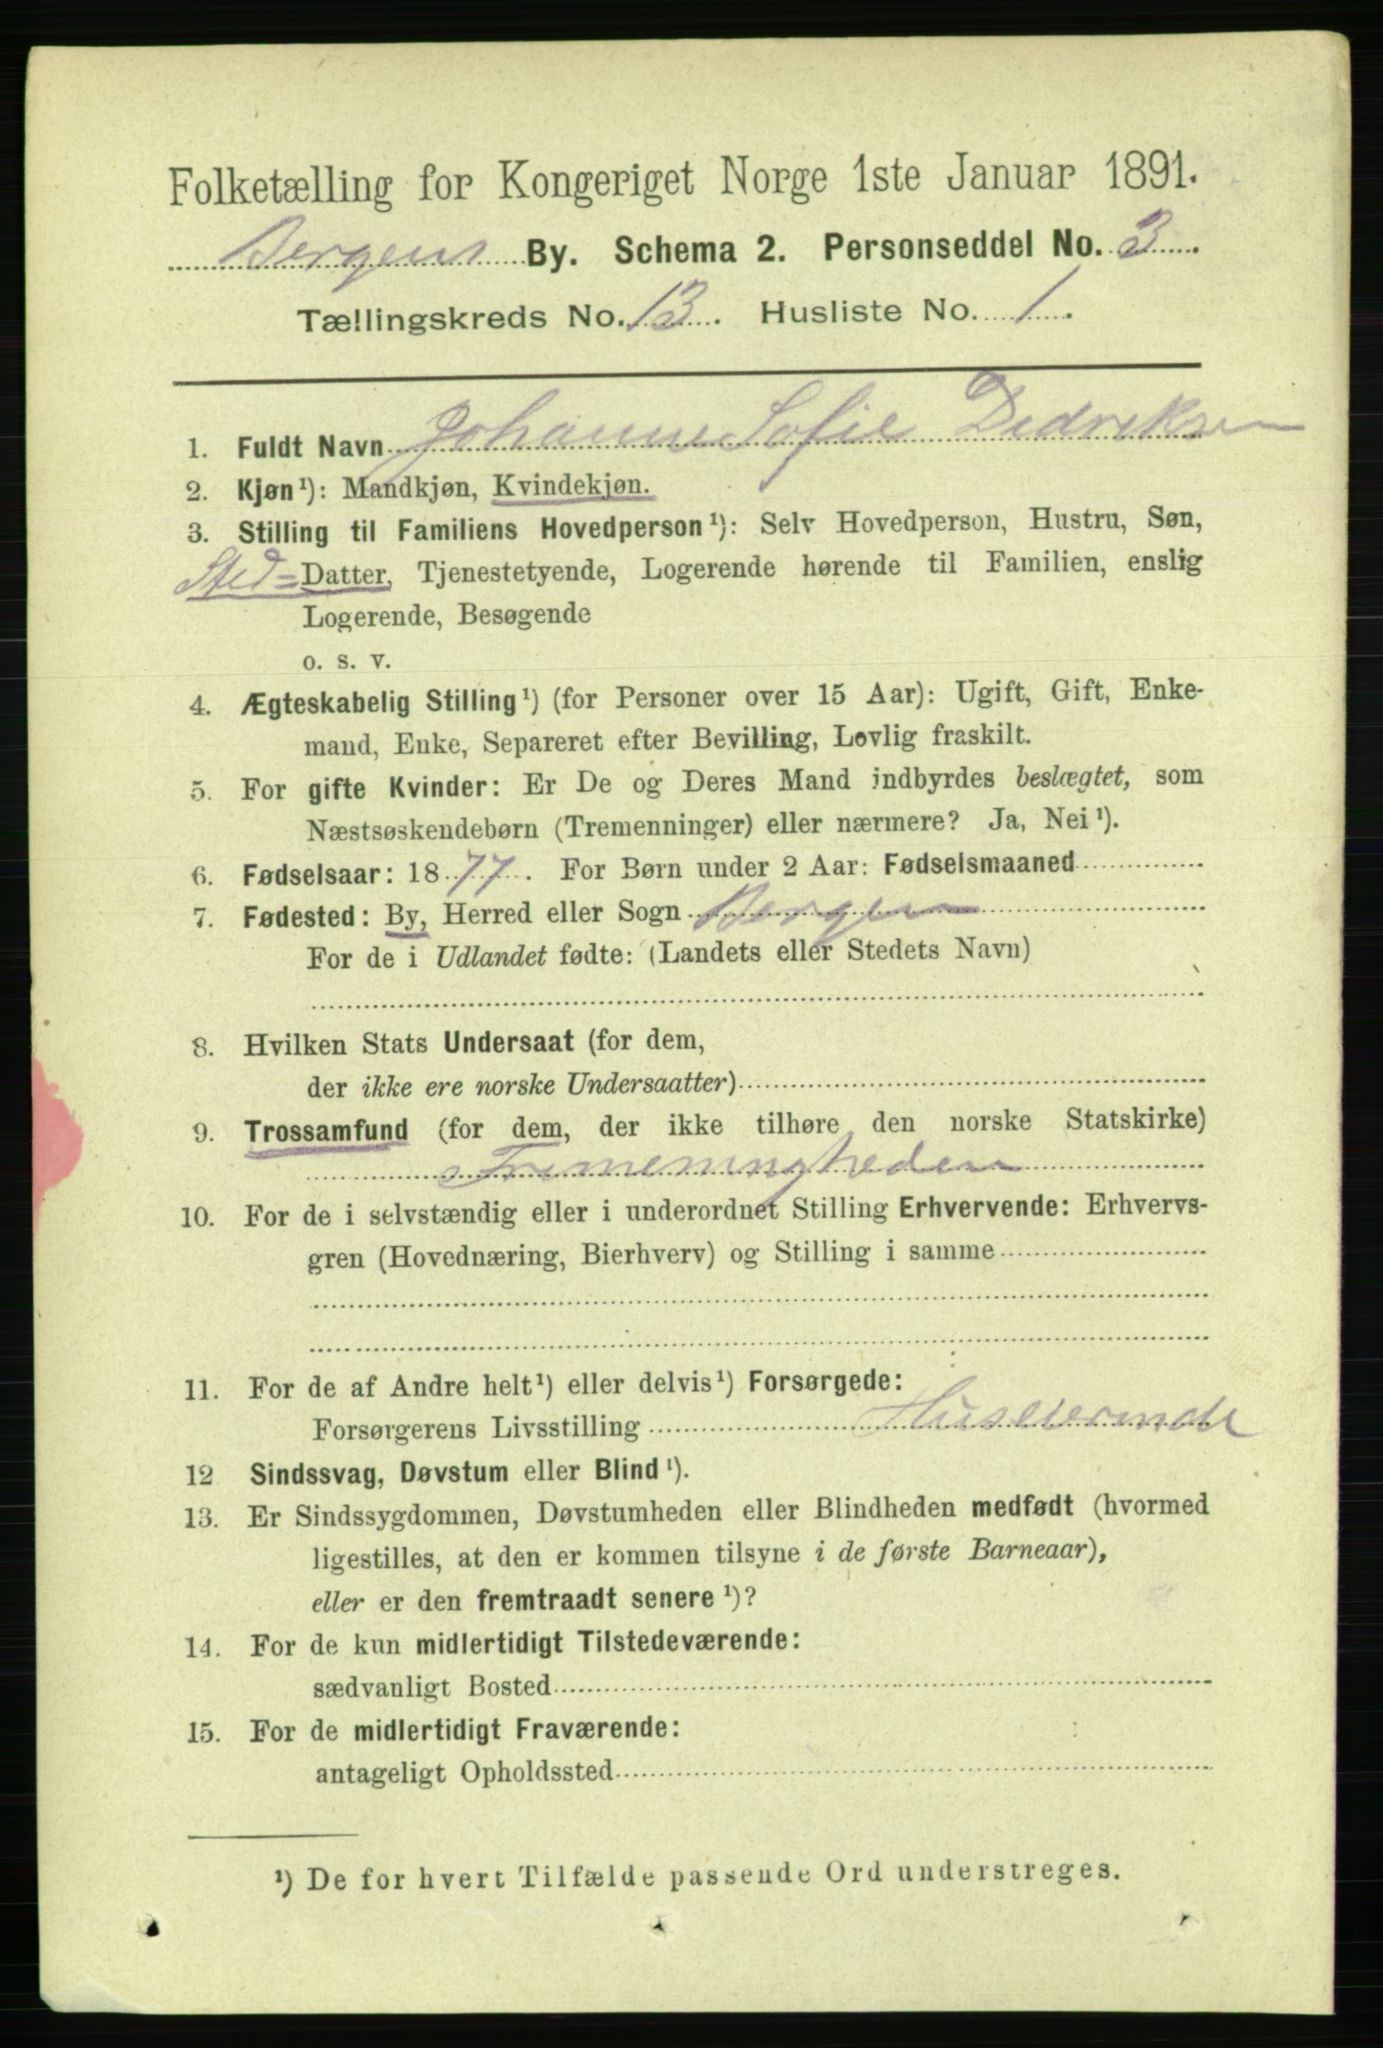 Folketælling for Kongeriget Norge 1ste Januar 1891.
Bergens By. Schema 2. Personseddel No. 3
Tællingskreds No. 13. Husliste No. 1.
1. Fuldt Navn Johanne Sofie Dedriksen
2. Kjøn¹): Mandkjøn, Kvindekjøn.
3. Stilling til Familiens Hovedperson¹): Selv Hovedperson, Hustru, Søn,
Sted=Datter, Tjenestetyende, Logerende hørende til Familien, enslig
Logerende, Besøgende
o. s. v.
4. Ægteskabelig Stilling¹) (for Personer over 15 Aar): Ugift, Gift, Enke-
mand, Enke, Separeret efter Bevilling, Lovlig fraskilt.
5. For gifte Kvinder: Er De og Deres Mand indbyrdes beslægtet, som
Næstsøskendebørn (Tremenninger) eller nærmere? Ja, Nei¹).
6. Fødselsaar: 1877. For Børn under 2 Aar: Fødselsmaaned
7. Fødested: By, Herred eller Sogn Bergen
For de i Udlandet fødte: (Landets eller Stedets Navn)
8. Hvilken Stats Undersaat (for dem,
der ikke ere norske Undersaatter)
9. Trossamfund (for dem, der ikke tilhøre den norske Statskirke)
Frimenigheden
10. For de i selvstændig eller i underordnet Stilling Erhvervende: Erhvervs-
gren (Hovednæring, Bierhverv) og Stilling i samme
11. For de af Andre helt¹) eller delvis¹) Forsørgede:
Forsørgerens Livsstilling Huseierinde
12 Sindssvag, Døvstum eller Blind¹).
13. Er Sindssygdommen, Døvstumheden eller Blindheden medfødt (hvormed
ligestilles, at den er kommen tilsyne i de første Barneaar),
eller er den fremtraadt senere¹)?
14. For de kun midlertidigt Tilstedeværende:
sædvanligt Bosted
15. For de midlertidigt Fraværende:
antageligt Opholdssted
¹) De for hvert Tilfælde passende Ord understreges.